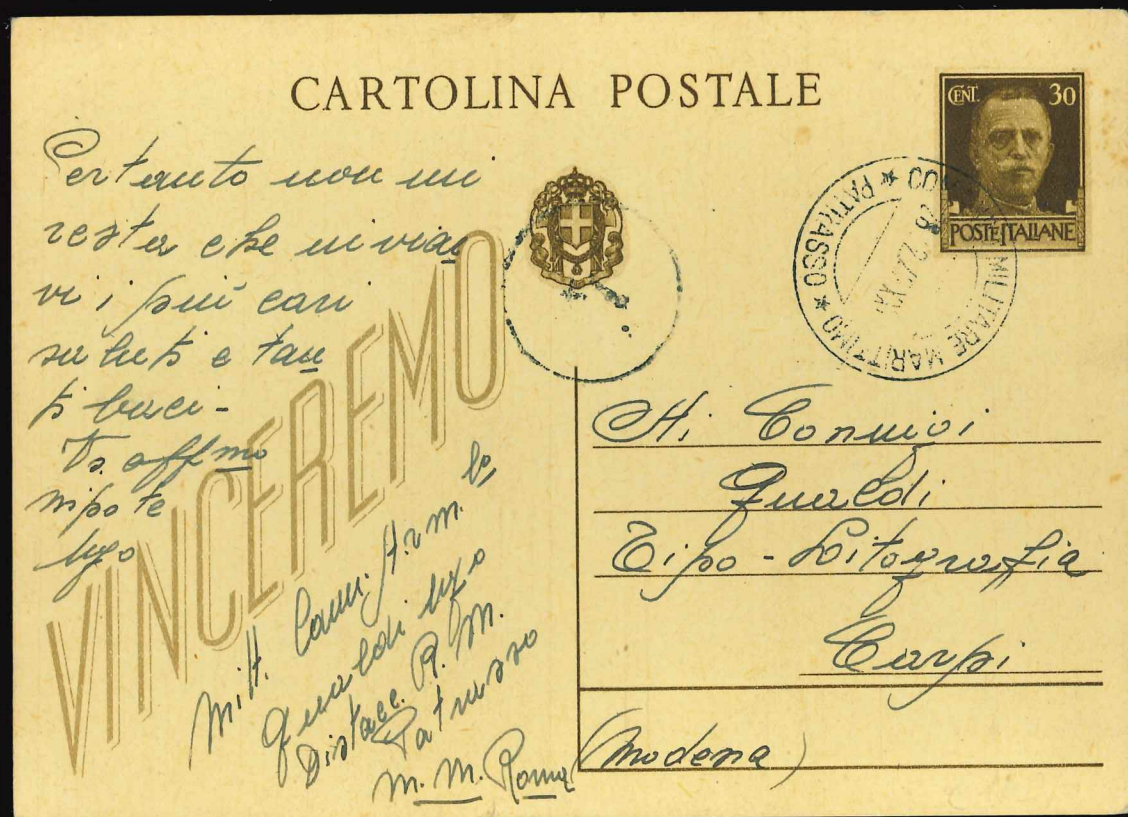 CARTOLINA POSTALE
CENT. 30
POSTE ITALIANE
MILITARE MARITTIMO * PATRASSO *
Pertanto non mi
resta che inviar
vi i più cari
saluti e tan
ti baci -
Vo. affmo
nipote
Ugo
VINCEREMO
Mitt. Cann. Arm.
Gualdi Ugo
Distacc. R. M.
Patrasso
M. M. Roma
Ai Coniugi
Gualdi
Tipo - Litografia
Carpi
(Modena)